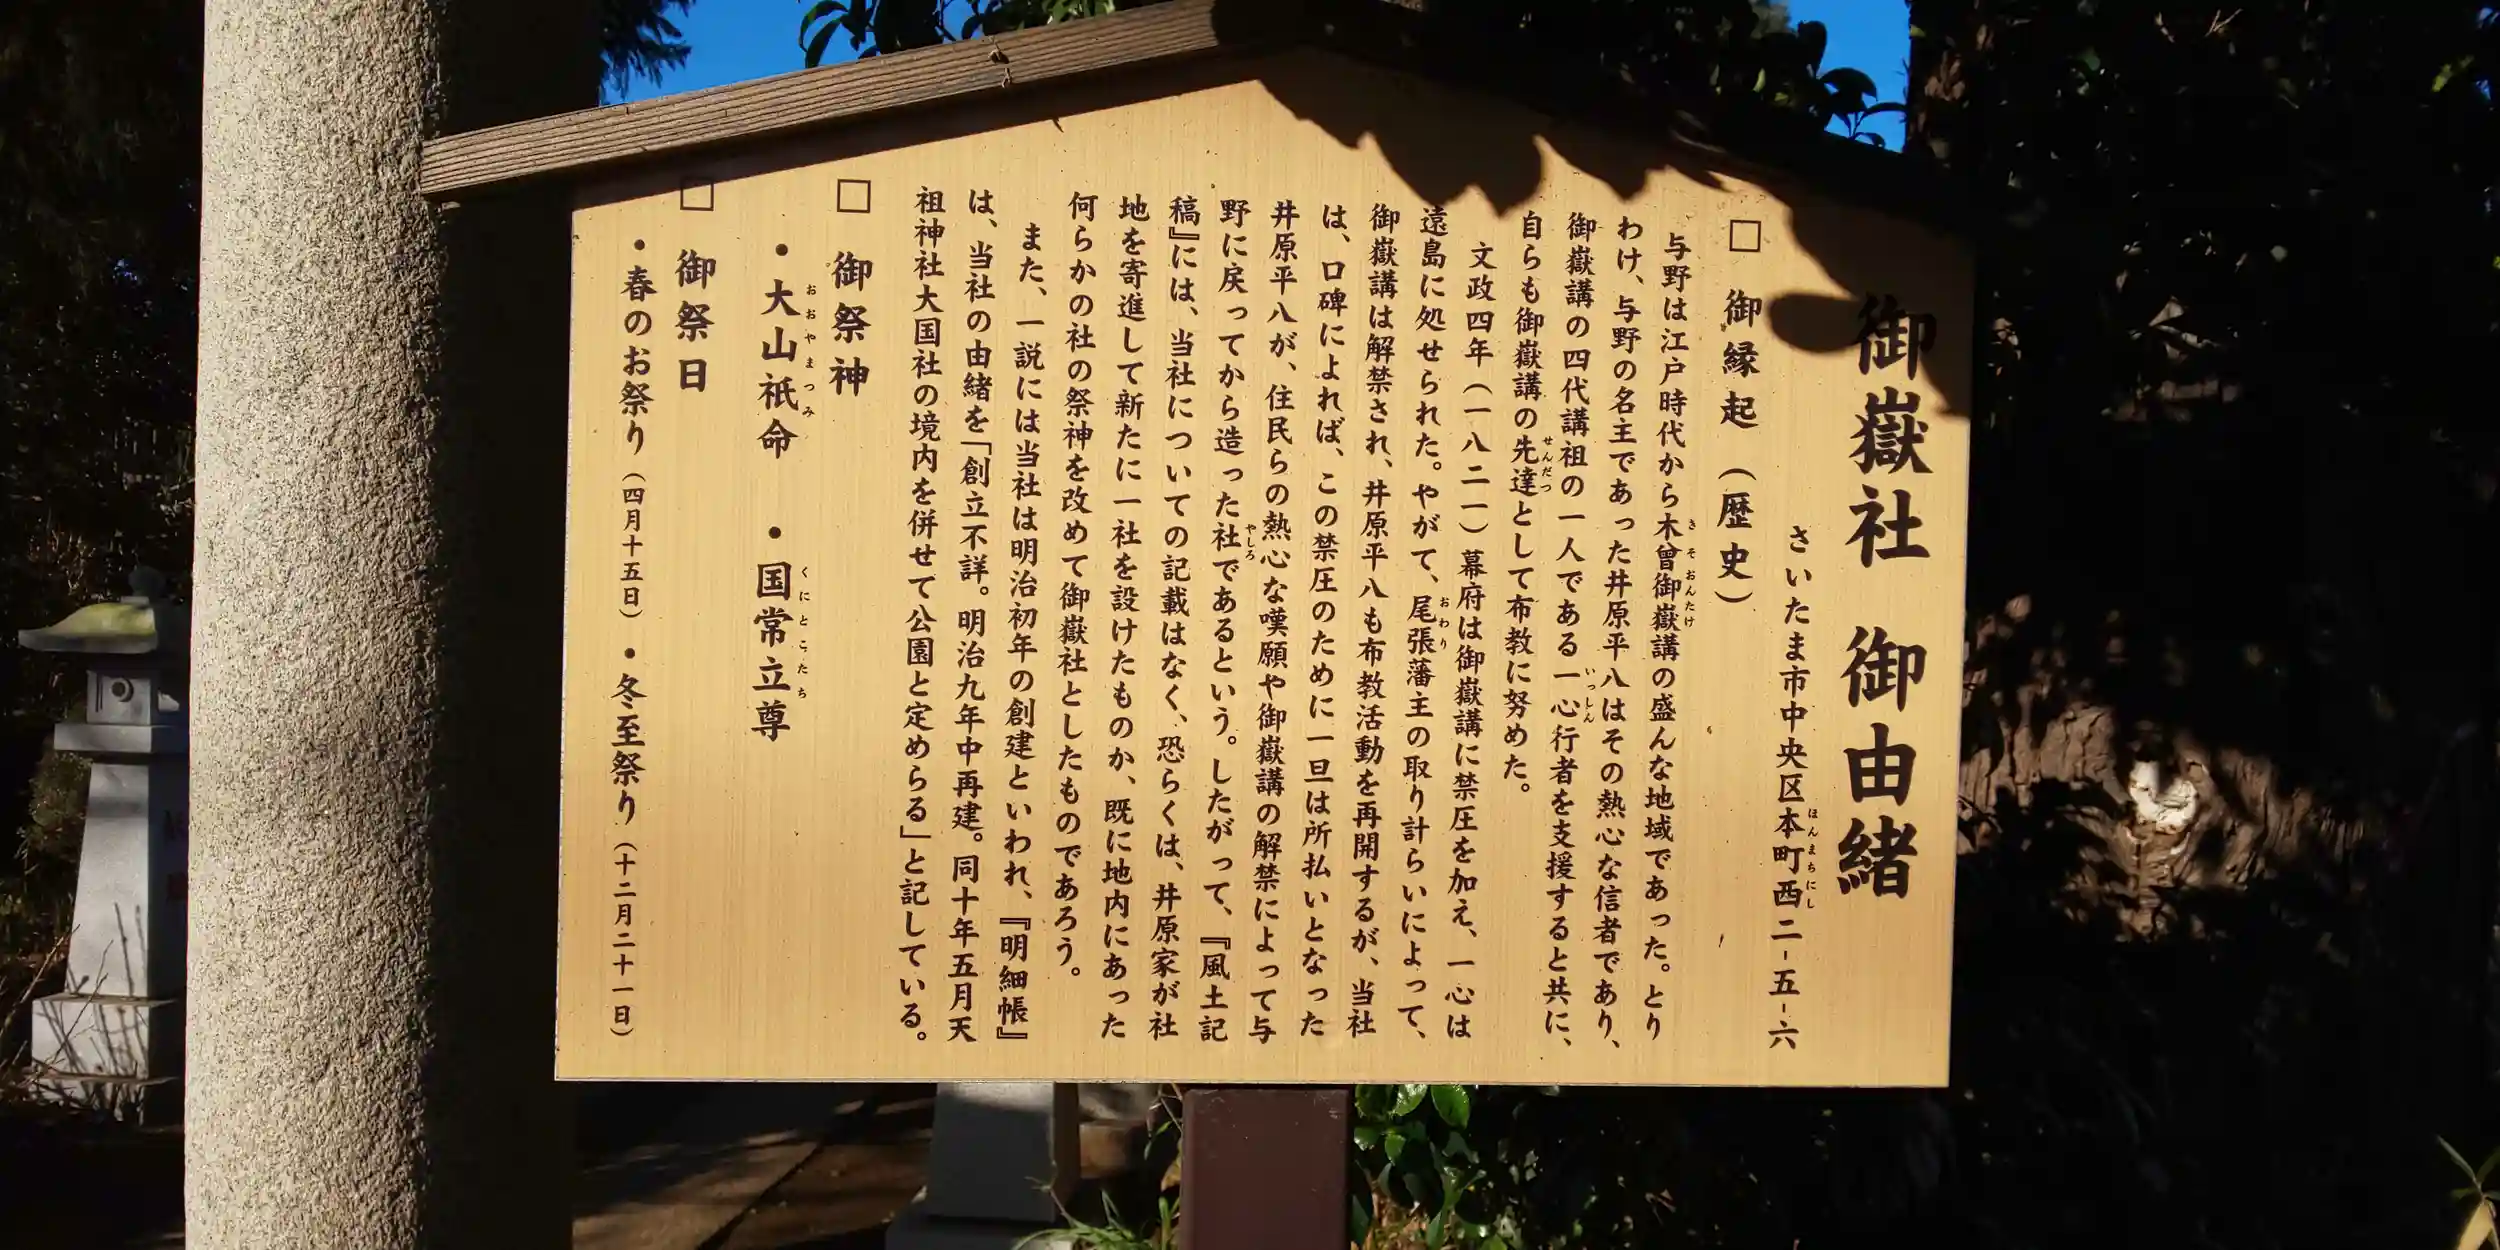 御嶽社 御由緒
さいたま市中央区本町西二-五-六
□ 御縁起(歴史)
与野は江戸時代から木曾御嶽講の盛んな地域であった。とり
わけ、与野の名主であった井原平八はその熱心な信者であり、
御嶽講の四代講祖の一人である一心行者を支援すると共に、
自らも御嶽講の先達として布教に努めた。
文政四年(一八二一)幕府は御嶽講に禁圧を加え、一心は
遠島に処せられた。やがて、尾張藩主の取り計らいによって、
御嶽講は解禁され、井原平八も布教活動を再開するが、当社
は、口碑によれば、この禁圧のために一旦は所払いとなった
井原平八が、住民らの熱心な嘆願や御嶽講の解禁によって与
野に戻ってから造った社であるという。したがって、『風土記
稿』には、当社についての記載はなく、恐らくは、井原家が社
地を寄進して新たに一社を設けたものか、既に地内にあった
何らかの社の祭神を改めて御嶽社としたものであろう。
また、一説には当社は明治初年の創建といわれ、『明細帳』
は、当社の由緒を「創立不詳。明治九年中再建。同十年五月天
祖神社大国社の境内を併せて公園と定めらる」と記している。
□ 御祭神
・大山祇命 ・国常立尊
□ 御祭日
・春のお祭り(四月十五日) ・冬至祭り(十二月二十一日)